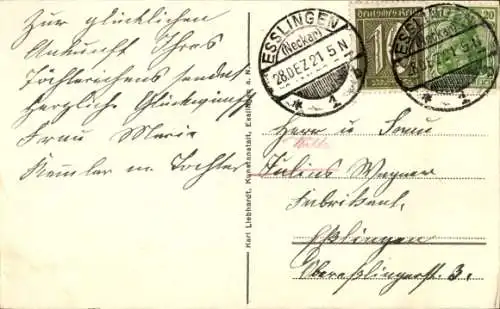 Zur glücklichen
Ankunft Ihres
Töchterchens sendet
herzliche Glückwünsche
Frau Marie
u. Tochter
Karl Liebhardt, Kunstanstalt, Esslingen a. N.
ESSLINGEN
(Neckar)
28.DEZ.21 5 N
* 1 *
Deutsches Reich
10
ESSLINGEN
(Neckar)
28.DEZ.21 5 N
* 1 *
Herr u Frau
Julius Wagner
Fabrikant,
Eßlingen
Obereßlingerstr. 3.